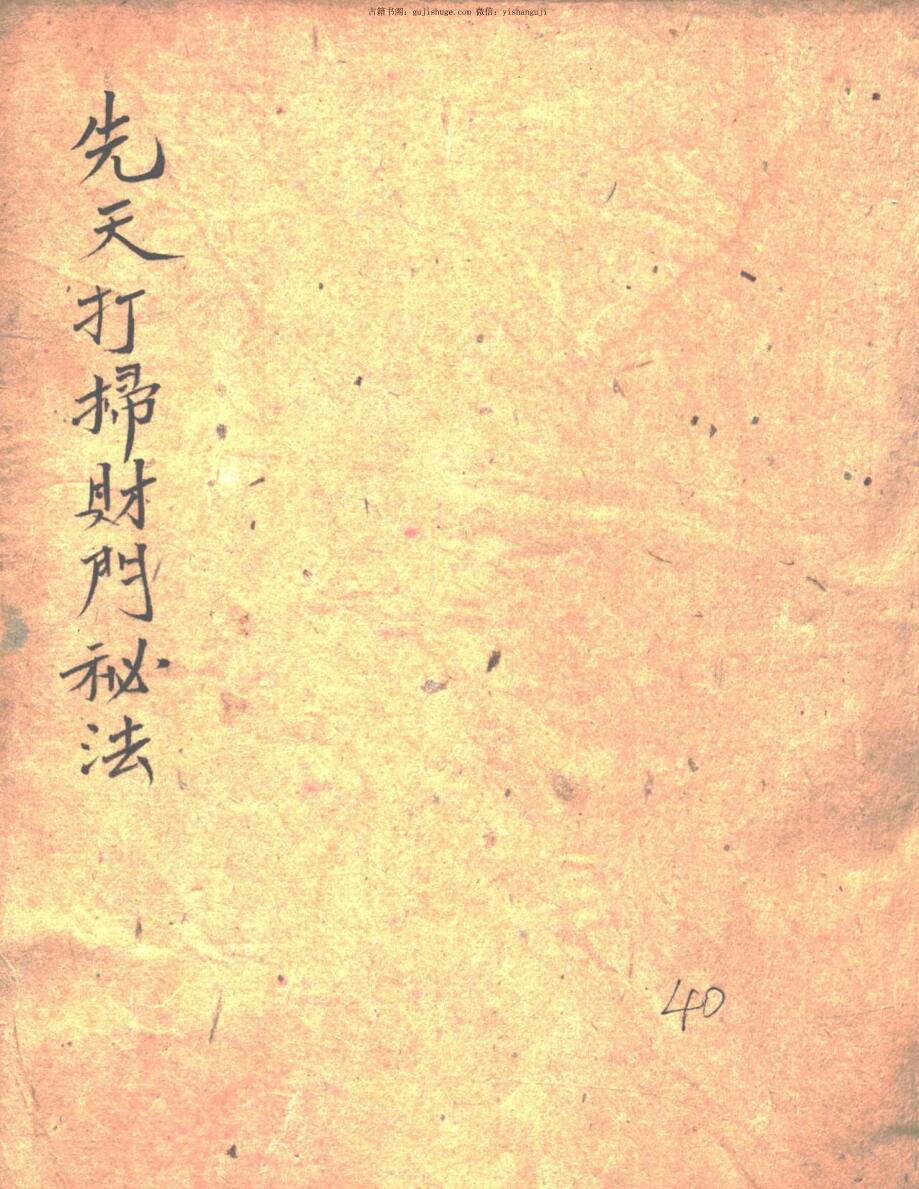 古籍书阁：gujishuge.com 微信：yishanguji
先天打掃財門秘法
40